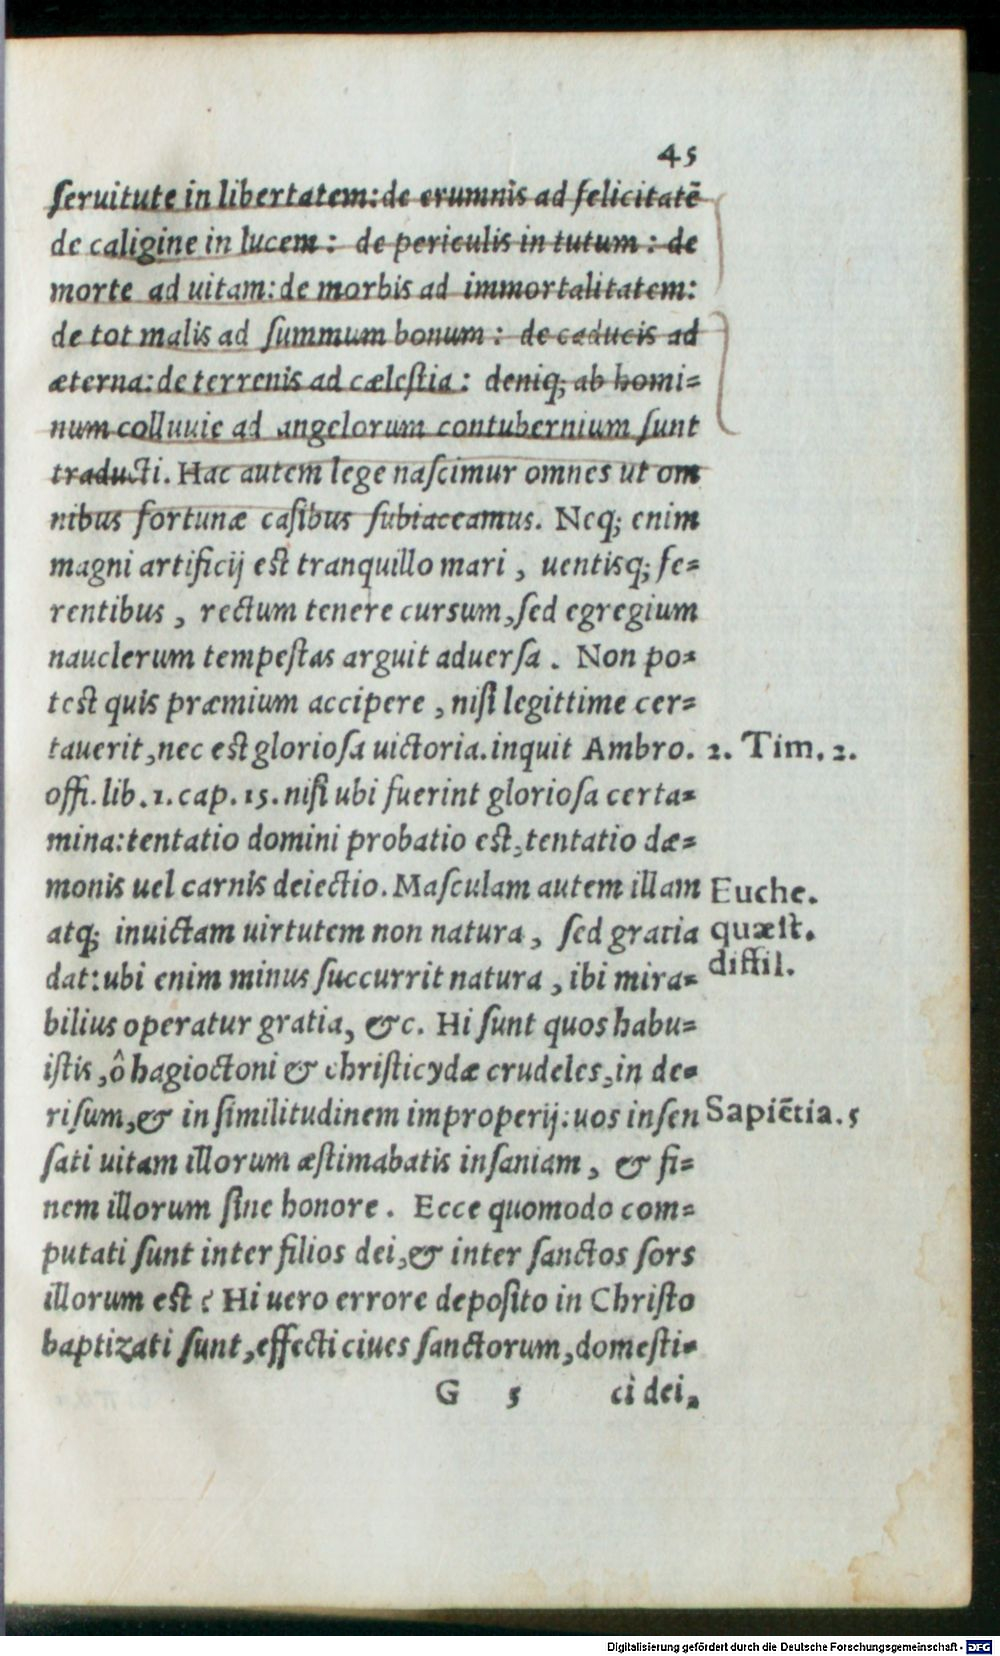 45
seruitute in libertatem: de erumnis ad felicitatē
de caligine in lucem: de periculis in tutum: de
morte ad uitam: de morbis ad immortalitatem:
de tot malis ad summum bonum: de caducis ad
æterna: de terrenis ad cælestia: deniq; ab homi=
num colluuie ad angelorum contubernium sunt
traducti. Hac autem lege nascimur omnes ut om
nibus fortunæ casibus subiaceamus. Neq; enim
magni artificij est tranquillo mari, uentisq; fe=
rentibus, rectum tenere cursum, sed egregium
nauclerum tempestas arguit aduersa. Non po=
test quis præmium accipere, nisi legittime cer=
tauerit, nec est gloriosa uictoria. inquit Ambro. 2. Tim. 2.
offi. lib. 1. cap. 15. nisi ubi fuerint gloriosa certa=
mina: tentatio domini probatio est, tentatio dæ=
monis uel carnis deiectio. Masculam autem illam Euche.
atq; inuictam uirtutem non natura, sed gratia quæst.
dat: ubi enim minus succurrit natura, ibi mira= diffil.
bilius operatur gratia, &c. Hi sunt quos habu=
istis, ô hagioctoni & christicydæ crudeles, in de=
risum, & in similitudinem improperij: uos insen Sapiētia. 5
sati uitam illorum æstimabatis insaniam, & fi=
nem illorum sine honore. Ecce quomodo com=
putati sunt inter filios dei, & inter sanctos sors
illorum est? Hi uero errore deposito in Christo
baptizati sunt, effecti ciues sanctorum, domesti=
G 5 ci dei,
Digitalisierung gefördert durch die Deutsche Forschungsgemeinschaft - DFG